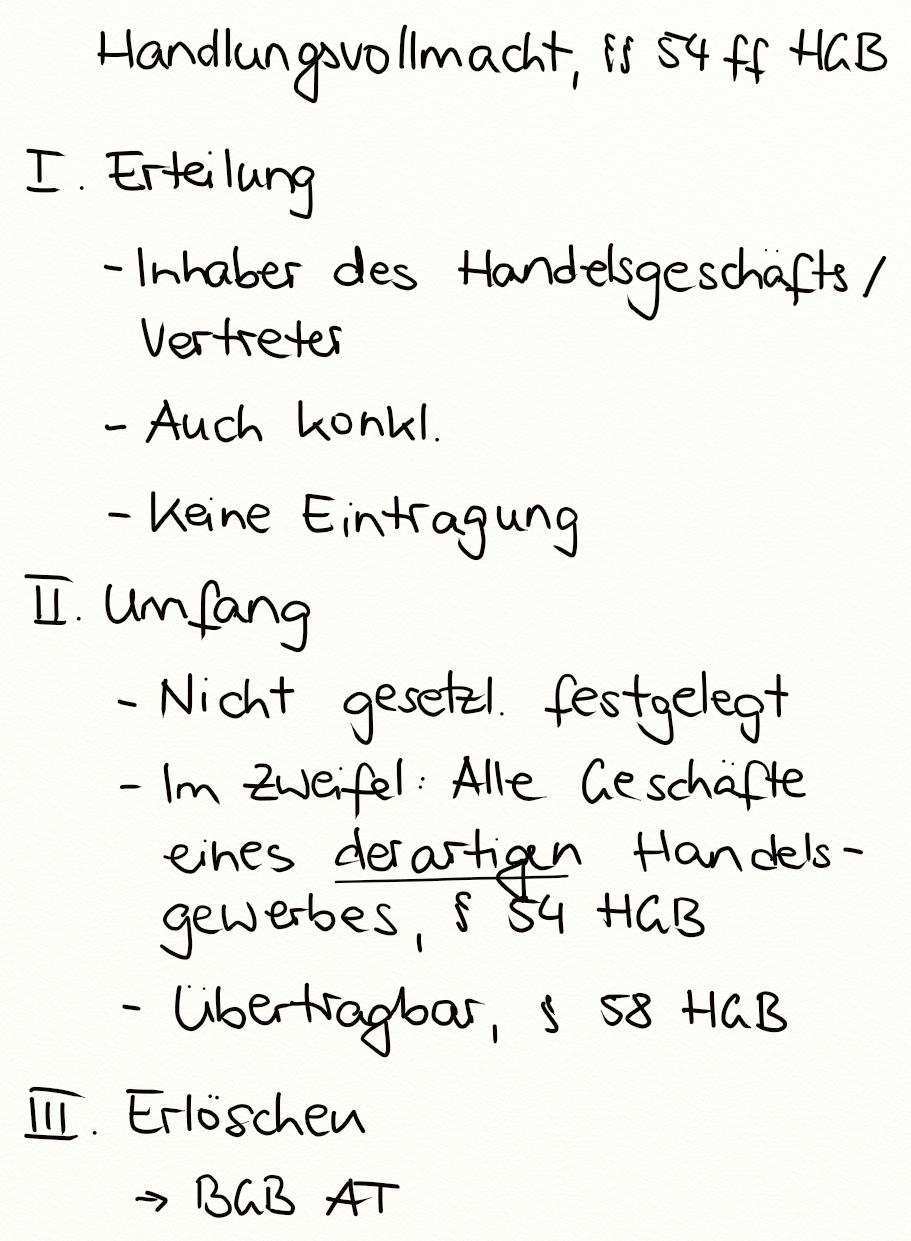 Handlungsvollmacht, §§ 54 ff HGB
I. Erteilung
- Inhaber des Handelsgeschäfts /
Vertreter
- Auch konkl.
- Keine Eintragung
II. Umfang
- Nicht gesetzl. festgelegt
- Im Zweifel: Alle Geschäfte
eines derartigen Handels-
gewerbes, § 54 HGB
- Übertragbar, § 58 HGB
III. Erlöschen
→ BGB AT